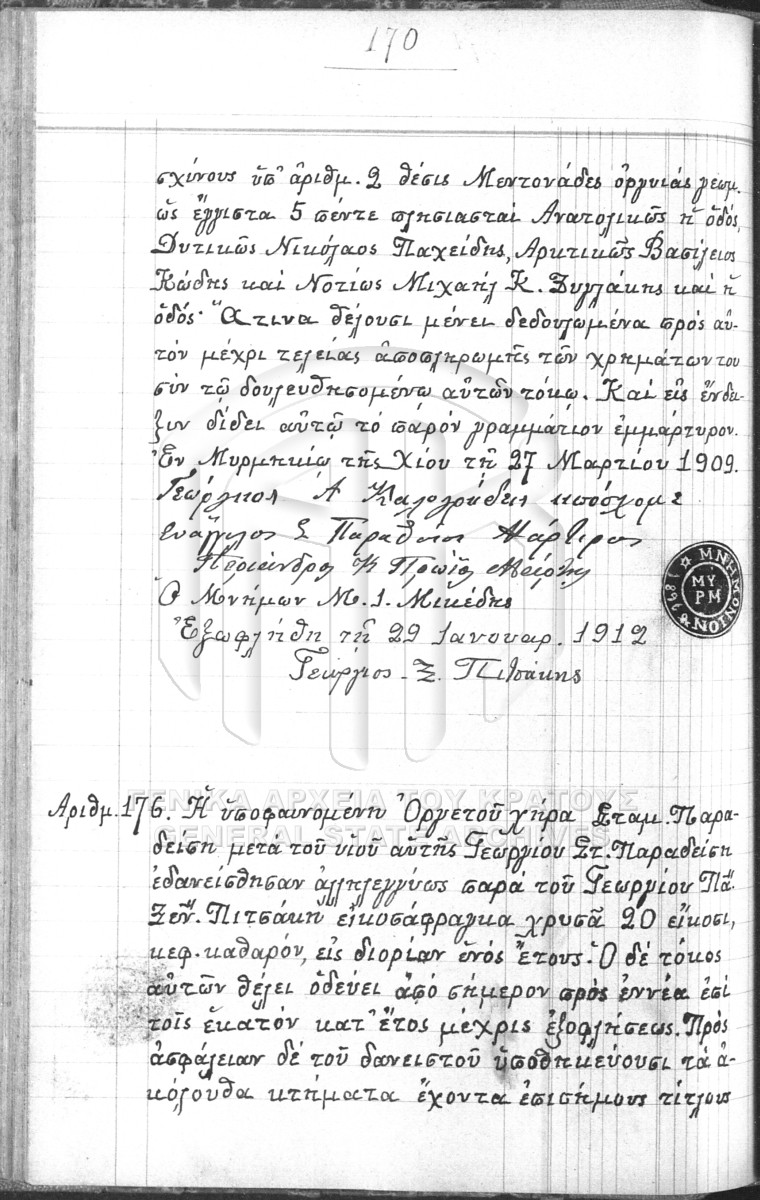 170
σχίνους ὑπ' ἀριθμ. 2 θέσις Μεντονάδες ὀργυιάς γεωμ.
ὡς ἔγγιστα 5 πέντε πλησιασταί Ἀνατολικῶς ἡ ὁδός,
Δυτικῶς Νικόλαος Παχείδης, Ἀρκτικῶς Βασίλειος
Κώδης καί Νοτίως Μιχαήλ Κ. Ξυγλάκης καί ἡ
ὁδός· Ἅτινα θέλουσι μένει δεδουλωμένα πρός αὐ-
τόν μέχρι τελείας ἀποπληρωμῆς τῶν χρημάτων του
σύν τῷ δουλευθησομένῳ αὐτῶν τόκῳ. Καί εἰς ἔνδει-
ξιν δίδει αὐτῷ τό παρόν γραμμάτιον ἐμμάρτυρον.
Ἐν Μυρμηκίῳ τῆς Χίου τῇ 27 Μαρτίου 1909.
Γεώργιος Ἀ Καλογρίδης
Εὐάγγελος Σ
Περίανδρος Κ
Ὁ Μνήμων Μ. Ι. Μικέδης
Ἐξωφλήθη τῇ 29 Ιανουαρ. 1912
Γεώργιος Ξ. Πιτσάκης
ΜΝΗΜΟΝΙΟΝ
ΜΥ
ΡΜ
ΓΕΝΙΚΑ ΑΡΧΕΙΑ ΤΟΥ ΚΡΑΤΟΥΣ
GENERAL STATE ARCHIVES
Ἀριθμ. 176. Ἡ ὑποφαινομένη Ὀργετοῦ χήρα Σταμ. Παρα-
δείση μετά τοῦ υἱοῦ αὐτῆς Γεωργίου Στ. Παραδείση
ἐδανείσθησαν ἀλληλεγγύως παρά τοῦ Γεωργίου Πᾶ.
Ξεν. Πιτσάκη εἰκοσάφραγκα χρυσᾶ 20 εἴκοσι,
κεφ. καθαρόν, εἰς διορίαν ἑνός ἔτους. Ὁ δέ τόκος
αὐτῶν θέλει ὁδεύει ἀπό σήμερον πρός ἐννέα ἐπί
τοῖς ἑκατόν κατ' ἔτος μέχρις ἐξοφλήσεως. Πρός
ἀσφάλειαν δέ τοῦ δανειστοῦ ὑποθηκεύουσι τά ἀ-
κόλουθα κτήματα ἔχοντα ἐπισήμους τίτλους